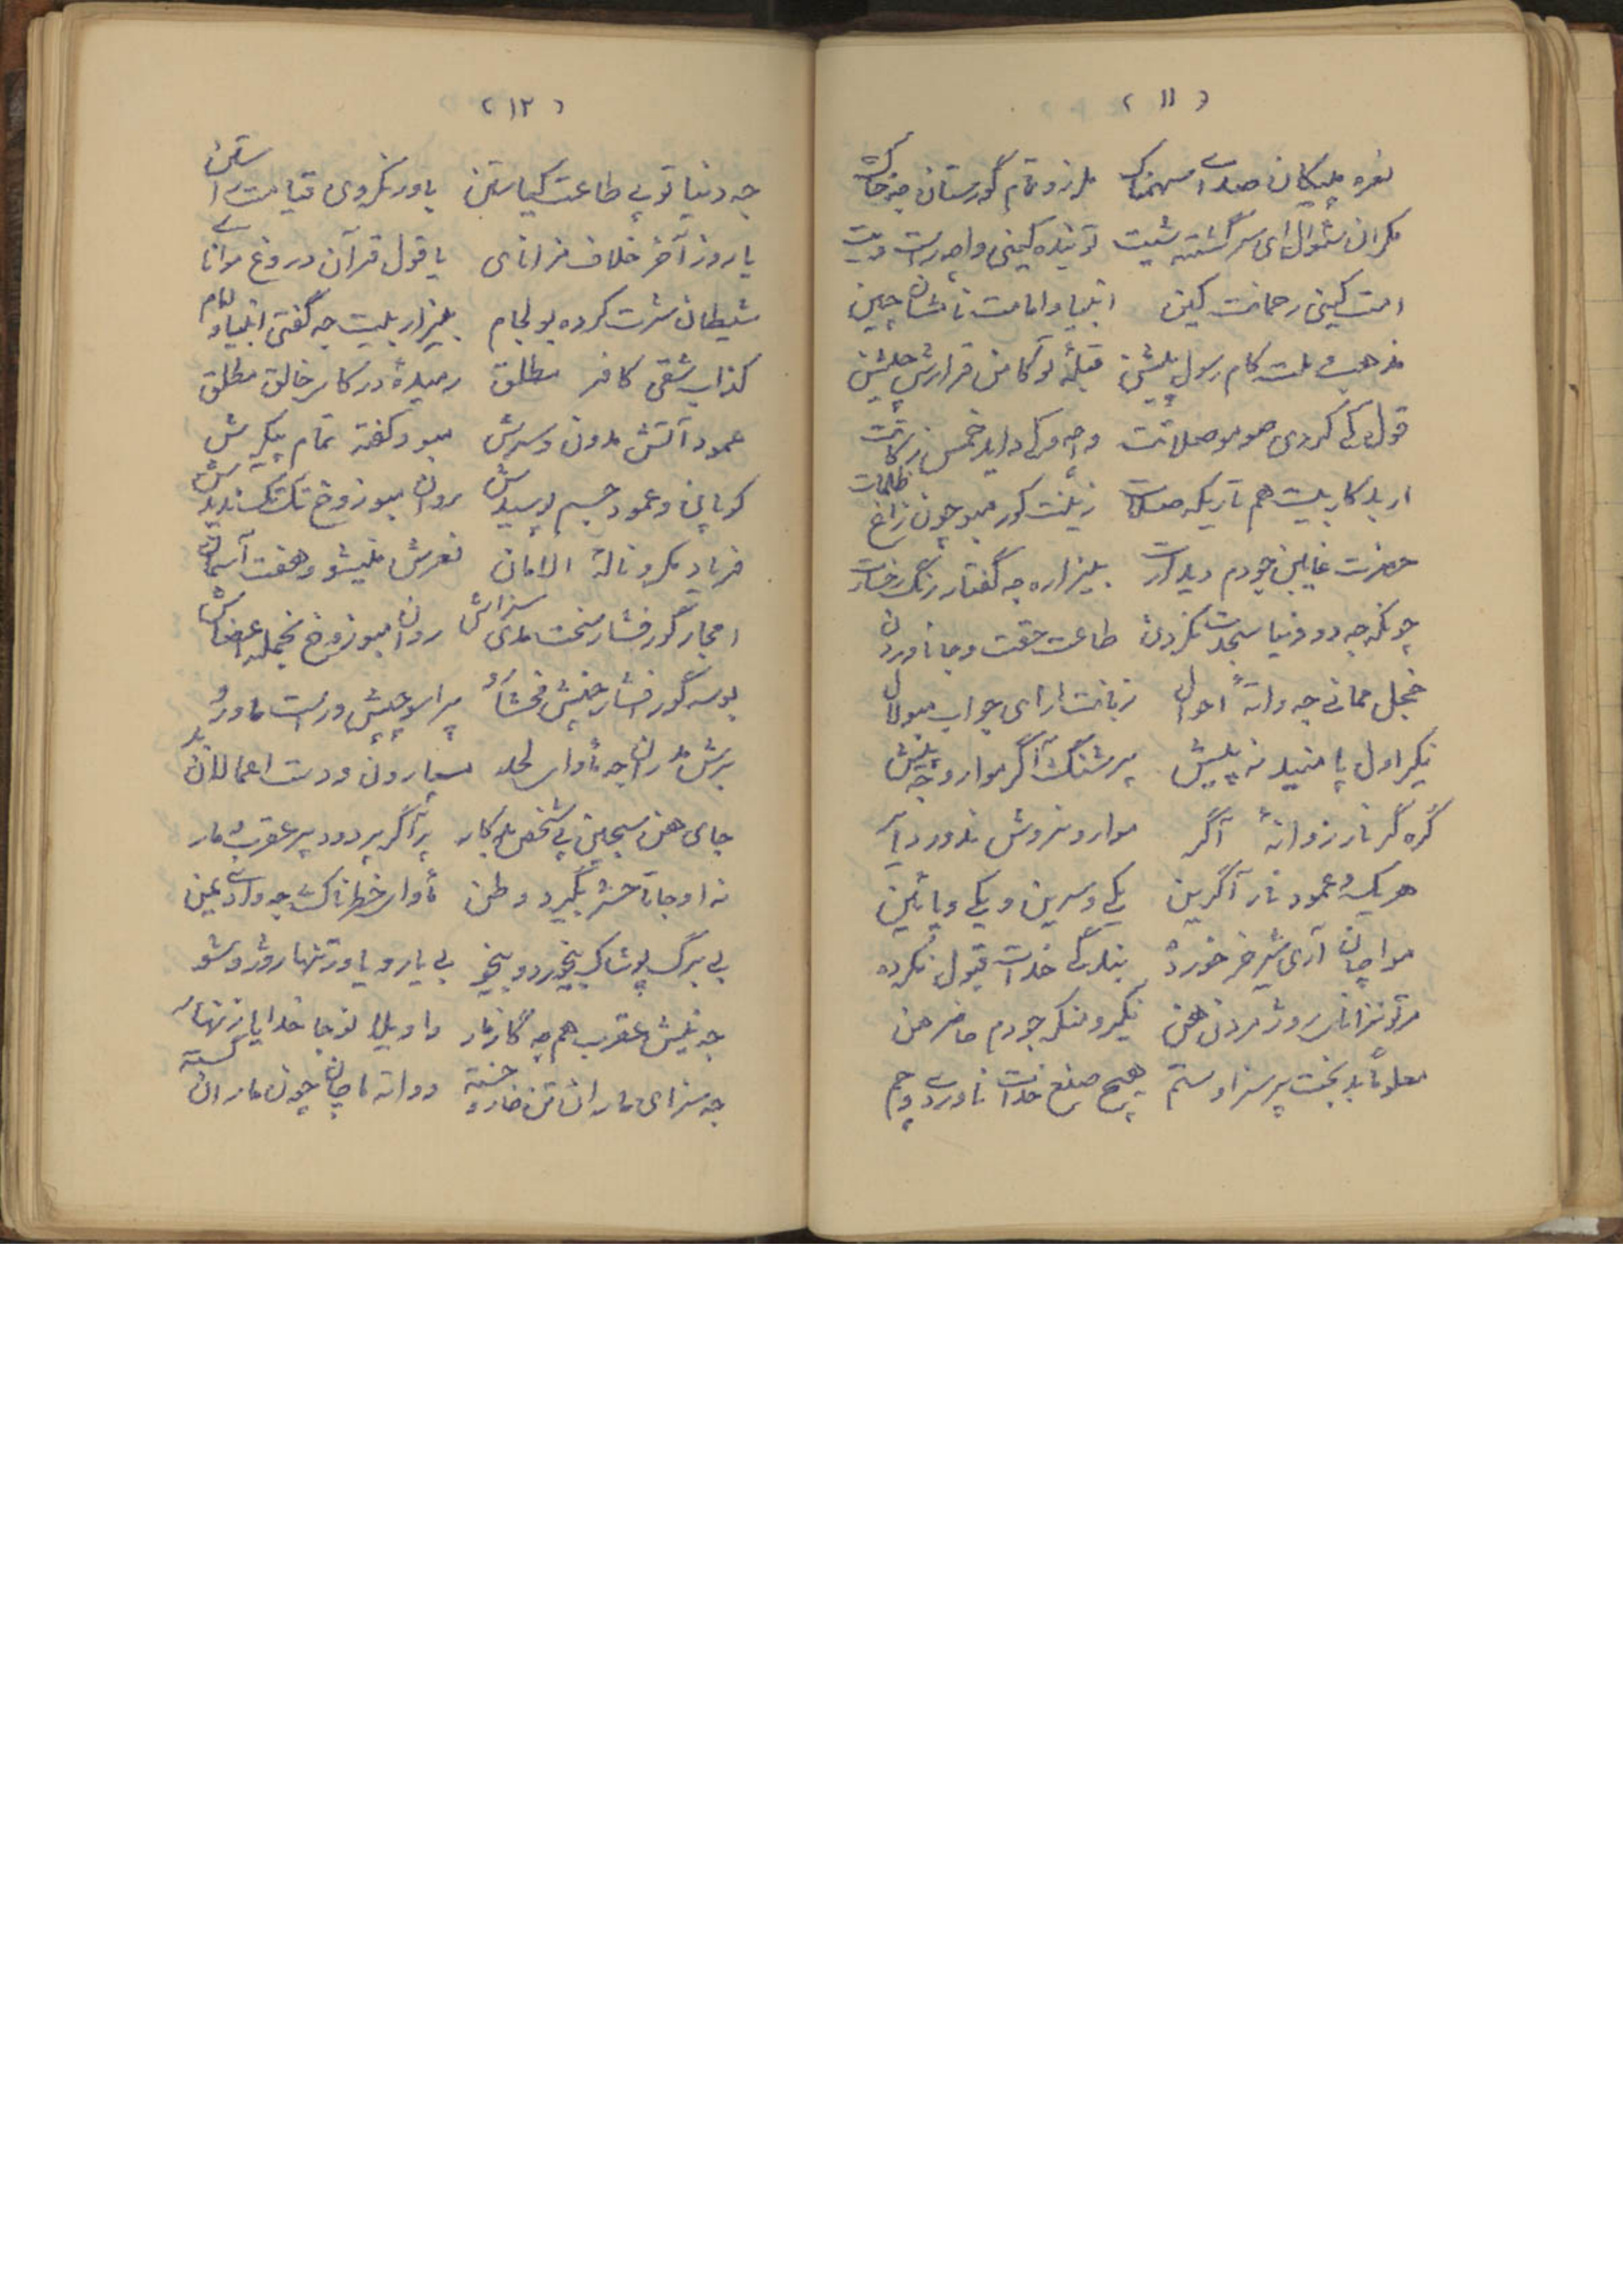 ( ١١ )
نعره پیکان صدای سهمناک ملرزو تمام گورستان جه خاک
مکران سئوال ای سرگشته شیت تو بنده کینی واحد راست ویت
امت کینی رحمانت کین انبیا و امامت نامشان چین
مذهب و ملت کام رسول پیشن قبله تو کامن قرارش چیشن
قول کی کردی صوم و صلاتت وجه مرکی داید خمس زکاتت
ار بد کار بیت هم تاریکه صلات زینت کور مبو چون زاغ ظلمات
حضرت غایبن چودم دیدارت بیزاره جه گفتار رنگ رخسارت
چونکه جه دو دنیا سجدت نکردن طاعت حقت وجا ناوردن
خجل ممانی جه واته احوال زبانت نارای جواب مبو لال
نکیر اول پا منید نه پیش پرشنگ آگر موارو جه نیش
گره گر نار زوانه آگر موارو نروش ندور دیا
هریک عمود نار آگرین یکی وسرین و یکی و پائین
مواچان آری شیر خر خورده بندگی خدات قبول نکرده
مرتو نزانای روژ مردن هن نکیر و منکر جودم حاضر هن
معلونا بدبخت پر سزا و ستم هیچ صنع خدات ناوردی وجم
( ١٢ )
جه دنیا تو بی طاعت کیاستن باور نکردی قیامت راستن
یا روز آخر خلاف مزانای یا قول قرآن دروغ موانای
شیطان شرت کرده بو لجام بیزار بیت جه گفتی انبیاو امام
کذاب شقی کافر مطلق رمیده درکار خالق مطلق
عمود آتش مدون وسرش مبو وکفته تمام پیکرش
کوپانی وعمود جسم پوسیدش روان مبو زوخ تک تک ندیدش
فریاد مکرو ناله الامان نعرش ملیشو وهفت آسمان
امجار گور فشار سخت مدی سزاش روان مبو زوخ نجمله عضاش
بوسه گور فشار چنیش فخشاو پر اسو چیش درست ماورو
برش مدران جه ماوای لحد مسپارون ودست اعمالان بد
جای هن سجین پی شخص بد کار پر آگر پر دود پر عقرب و مار
نه اوجا تا حشر بگیرد وطن ماوای خطرناک جه وادی عین
بی برگ پوشاک بیخورد و بیخو بی یار و یاور تنها روژ و شو
جه نیش عقرب هم جه گاز مار واویلا نوجا خدایا زنهار
جه سزای ماران تن خارو خسته دوانه ماچان چون ماران گسته